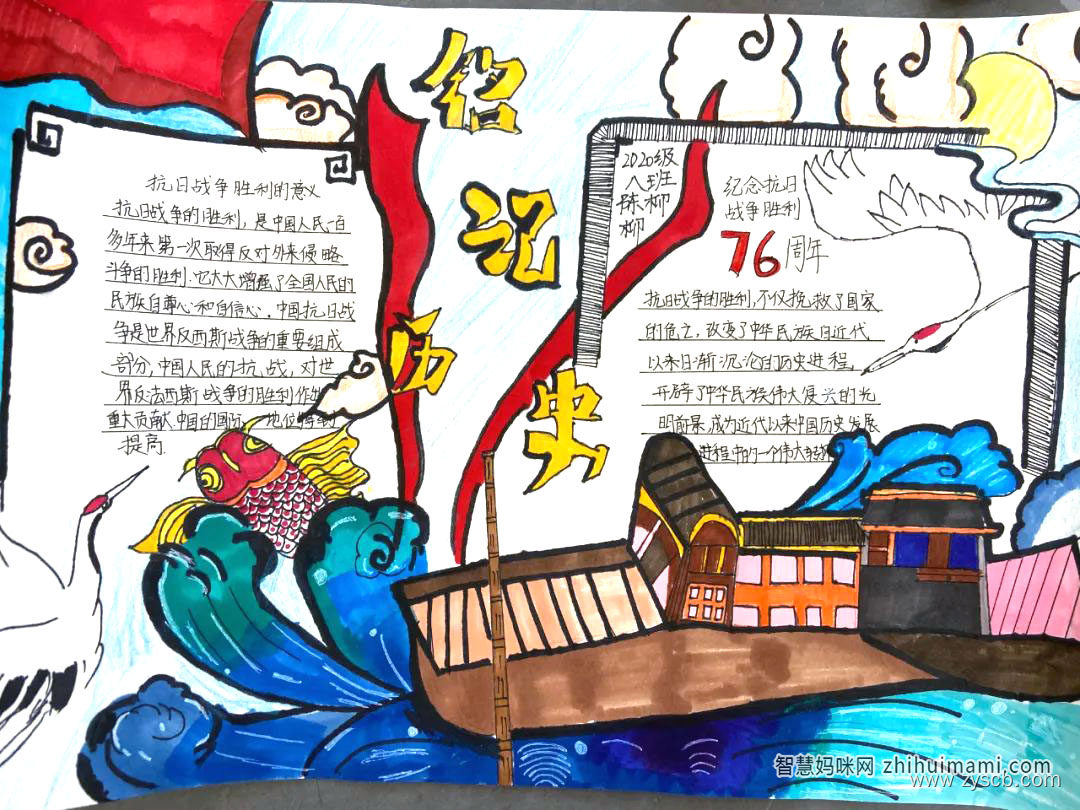 铭
记
历
史
抗日战争胜利的意义
抗日战争的胜利，是中国人民一百
多年来第一次取得反对外来侵略
斗争的胜利.它大大增强了全国人民的
民族自尊心和自信心，中国抗日战
争是世界反西斯战争的重要组成
部分，中国人民的抗战，对世
界反法西斯战争的胜利作出
重大贡献.中国的国际 地位得到
提高.
2020级
八班
陈柳
柳
纪念抗日
战争胜利
76周年
抗日战争的胜利，不仅挽救了国家
的危亡，改变了中华民族自近代
以来日渐沉沦的历史进程，
开辟了中华民族伟大复兴的光
明前景，成为近代以来中国历史发展
进程中的一个伟大转
智慧妈咪网 zhihuimami.com
www.zyscb.com